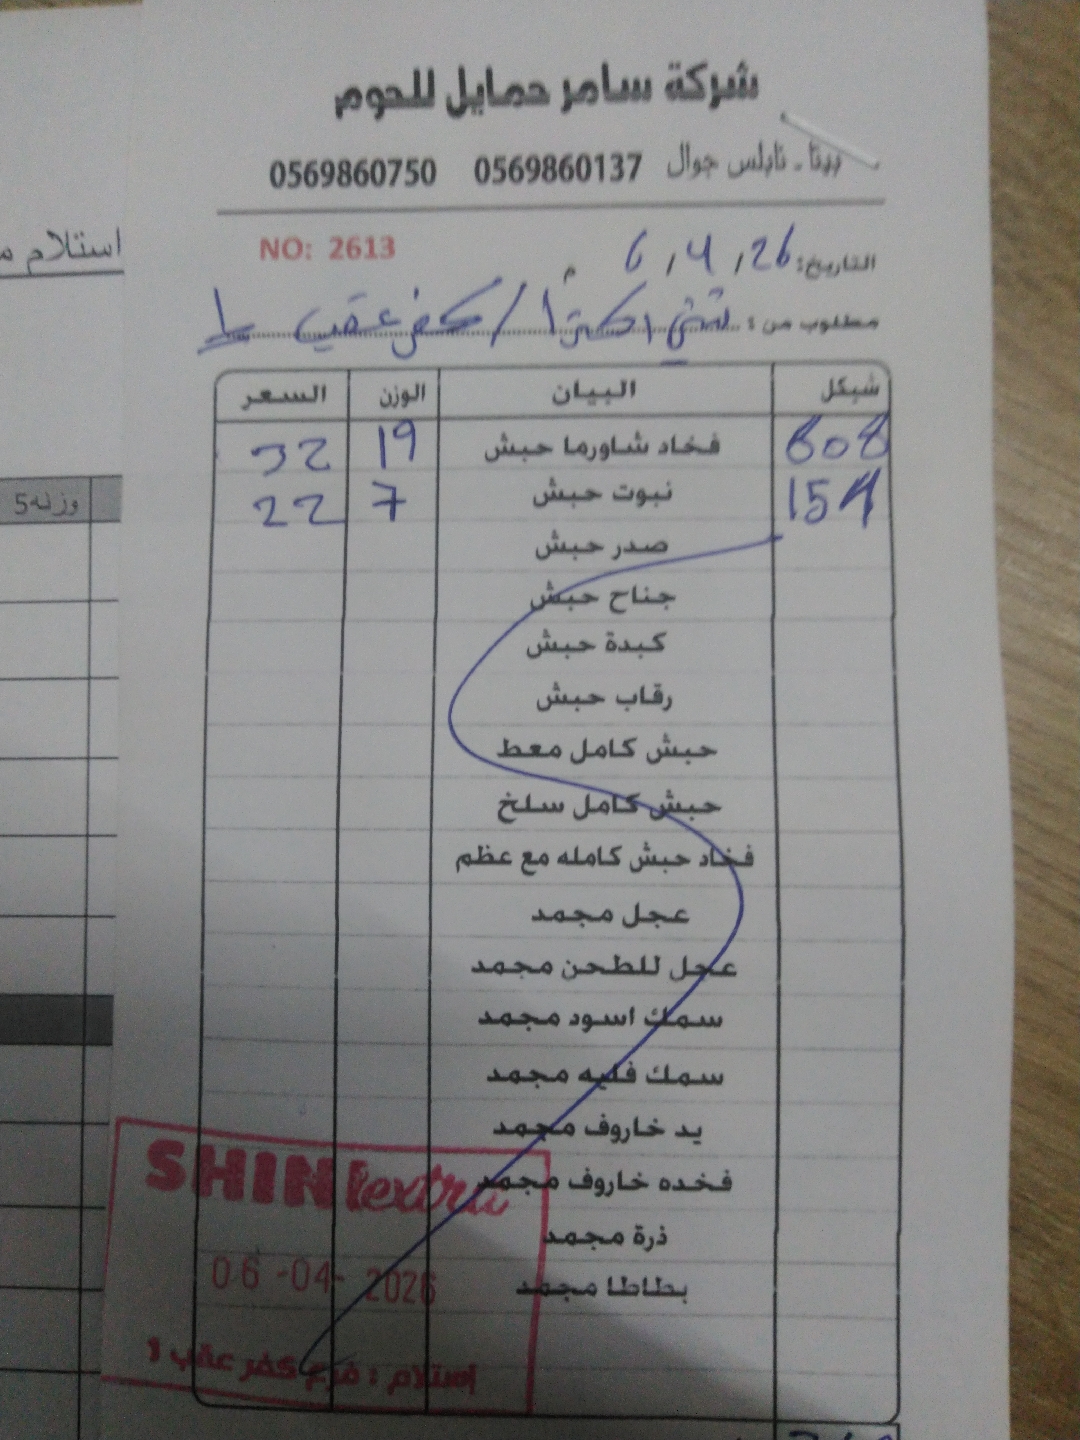 شركة سامر حمايل للحوم
بيتا - نابلس جوال 0569860137 0569860750
NO: 2613
التاريخ: 6 / 4 / 26
مطلوب من: شني اكترا / كفر عقب 1
شيكل البيان الوزن السعر
608 فخاد شاورما حبش 19 32
154 نبوت حبش 7 22
صدر حبش
جناح حبش
كبدة حبش
رقاب حبش
حبش كامل معط
حبش كامل سلخ
فخاد حبش كامله مع عظم
عجل مجمد
عجل للطحن مجمد
سمك اسود مجمد
سمك فليه مجمد
يد خاروف مجمد
فخده خاروف مجمد
ذرة مجمد
بطاطا مجمد
SHINI extra
06 -04- 2026
استلام : فرع كفر عقب 1
استلام
وزنه5